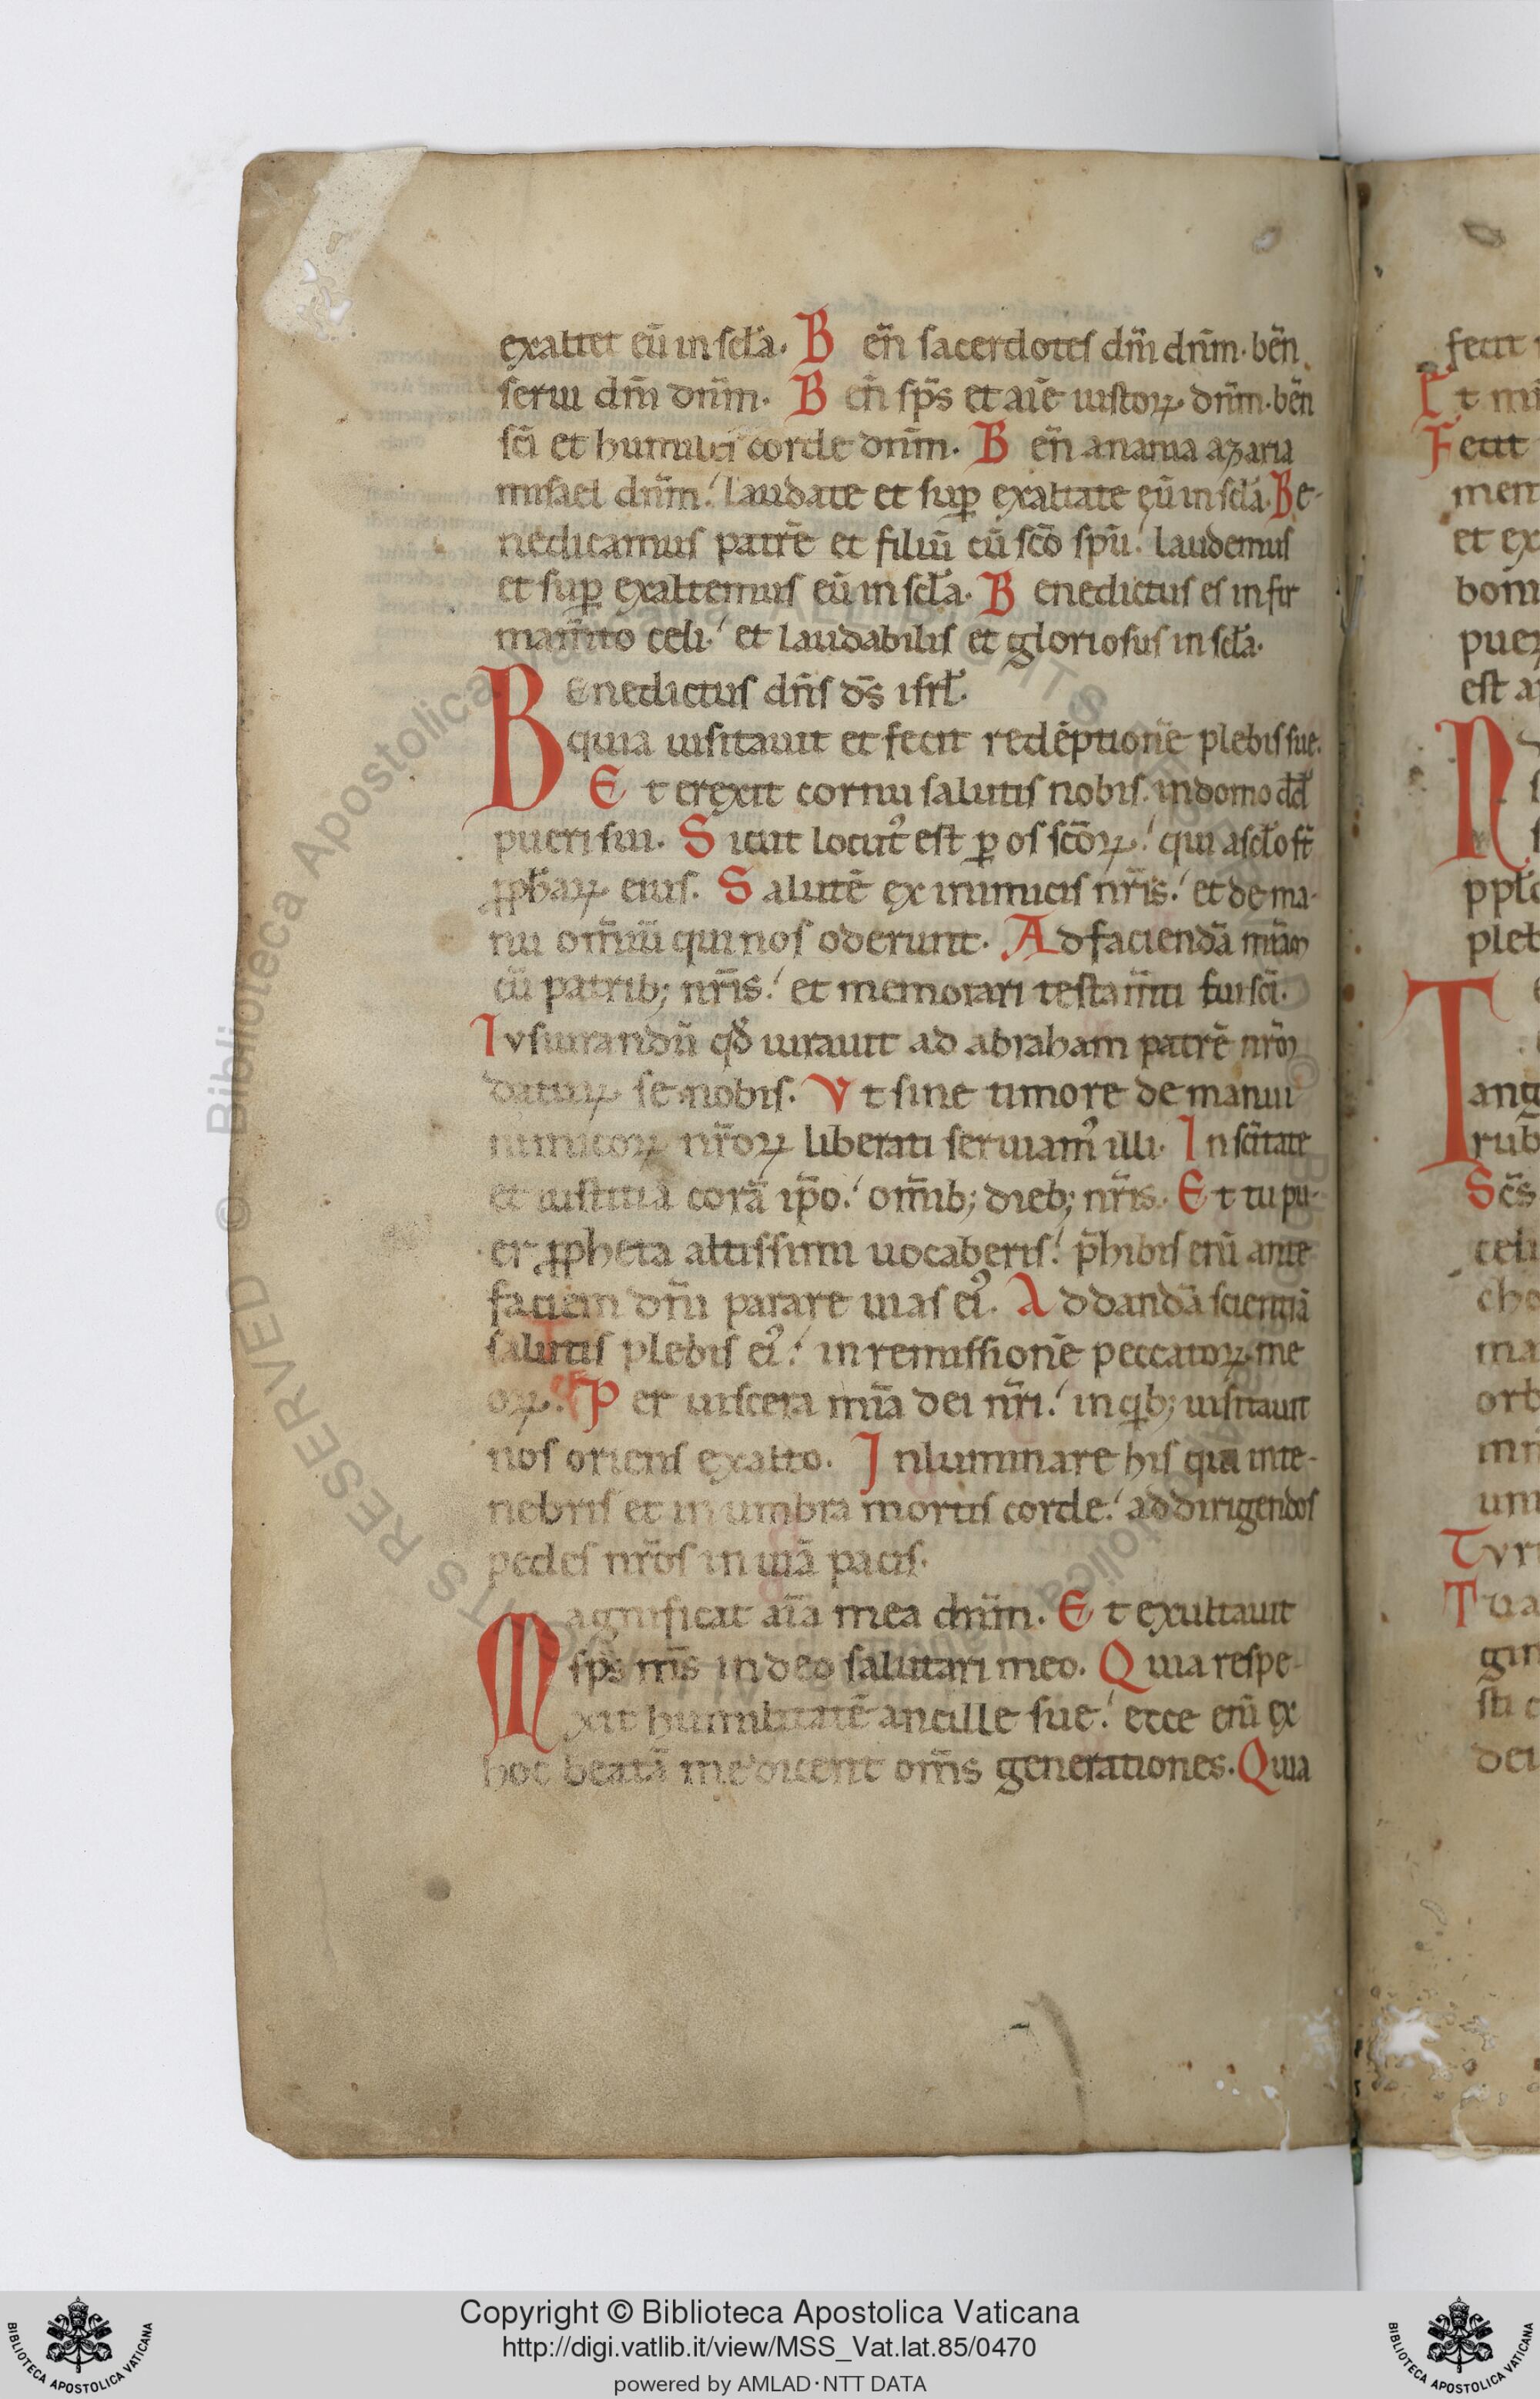 exaltet eū in scła. B en̄ sacerdotes dn̄i dn̄m. bēn
serui dn̄i dn̄m. B en̄ sp̄s et aīe iustoꝝ dn̄m. bēn
sc̄i et humiles corde dn̄m. B en̄ anania azaria
misael dn̄m. laudate et suꝑ exaltate eū in scła. Be-
nedicamus patrē et filiū cū sc̄o sp̄u. laudemus
et suꝑ exaltemus eū in scła. B enedictus es in fir
mam̄to celi. et laudabilis et gloriosus in scła.
Benedictus dn̄s ds̄ isrł.
quia uisitauit et fecit redēptionē plebis sue.
E t erexit cornu salutis nobis. in domo dd̄
pueri sui. S icut locut᷒ est ꝑ os sc̄oꝝ. qui a scło st̄
ꝓph̄aꝝ eius. S alutē ex inimicis nr̄is. et de ma-
nu om̄iū qui nos oderunt. A d faciendā mīam
cū patrib; nr̄is. et memorari testam̄ti sui sc̄i.
I vsiurandū qd̄ iurauit ad abraham patrē nr̄m
daturꝝ se nobis. V t sine timore de manu i
nimicoꝝ nr̄oꝝ liberati seruiam᷒ illi. I n sc̄itate
et iustitiā corā ip̄o. om̄ib; dieb; nr̄is. E t tu pu-
er ꝓpheta altissimi uocaberis. p̄hibis enī ante
faciem dn̄i parare uias ei᷒. A d dandā scientiā
salutis plebis ei᷒. in remissionē peccatoꝝ me
oꝝ. P er uiscera mīa dei nr̄i. in qib; uisitauit
nos oriens ex alto. I nluminare his qui in te-
nebris et in umbra mortis corde. ad dirigendos
pedes nr̄os in uiā pacis.
Magnificat aīa mea dn̄m. E t exultauit
sp̄s ms̄ in deo salutari meo. Q uia respe-
xit humilitatē ancille sue. ecce enī ex
hoc beatā me dicent om̄s generationes. Quia
fecit
E t mi
F ecit
men
et ex
boni
puer
est
N
pplo
pleb
T
ang
rub
Sc̄s
celi
cho
ma
orb
um
Tvr
Tua
gin
sti
dei
© Biblioteca Apostolica Vaticana ALL RIGHTS RESERVED
Copyright © Biblioteca Apostolica Vaticana
http://digi.vatlib.it/view/MSS_Vat.lat.85/0470
powered by AMLAD·NTT DATA
BIBLIOTECA APOSTOLICA VATICANA
BIBLIOTECA APOSTOLICA VATICANA